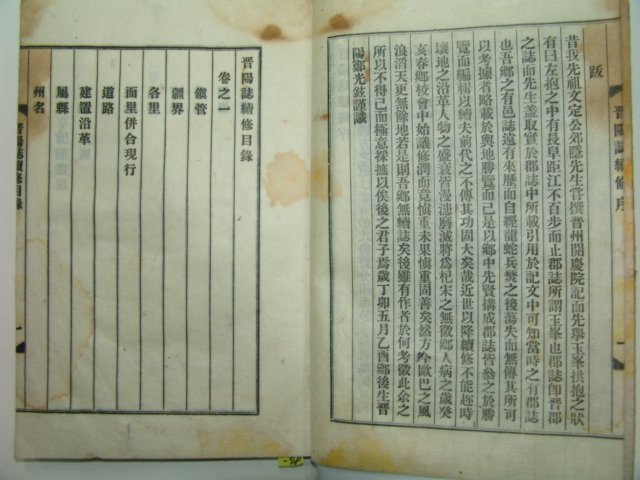 跋
昔我先祖文定公郊隱先生甞撰晋州開慶院記而先擧玉峯拱抱之狀
有曰左抱之中有長阜距江不百步而止郡誌所謂玉峯也郡誌卽晋郡
之誌而先生盖取實於郡誌中所載引用於記文中可知當時之有郡誌
也吾鄕之有邑誌遠有來歷而自經龍蛇兵燹之後蕩失而無傳其所可
以考據者略載於輿地勝覽而已是以鄕中先賢搆成郡誌皆發之於勝
覽而編輯以續夫前代之不傳其功固大矣哉近世以降續修不能趂時
壤地之沿革人物之盛衰皆漫漶磨滅將爲杞宋之無徵鄕人病之歲癸
亥春鄕校會中始議修潤而竟愼重未果愼重固善矣然方今歐巴之風
浪滔天更無餘地若是則吾鄕無續誌矣後雖有作者於何考徵此余之
所以不得已而極意探摭以俟後之君子焉歲丁卯五月乙酉鄕後生晋
陽鄭光鉉謹識
晋陽誌續修序
晋陽誌續修目錄
卷之一
鎭管
疆界
各里
面里併合現行
道路
建置沿革
屬縣
州名
晋陽誌續修目錄
一
-98